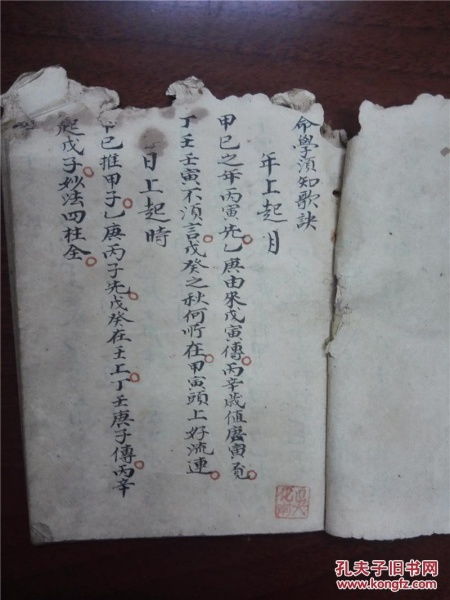 命學須知歌訣
年上起月
甲巳之年丙寅先乙庚由來戊寅傳丙辛歲值庚寅
丁壬壬寅不須言戊癸之秋何所在甲寅頭上好流連
日上起時
甲巳推甲子乙庚丙子先戊癸在壬上丁壬庚子傳丙辛
起戊子妙法四柱全
孔夫子旧书网
www.kongfz.com